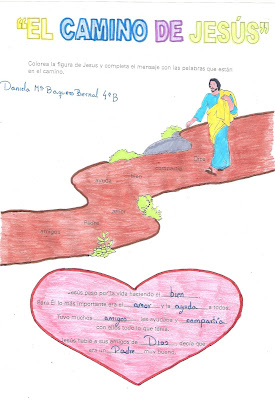 "EL CAMINO DE JESÚS"
Colorea la figura de Jesus y completa el mensaje con las palabras que están
en el camino.
Daniela Mª Baquero Bernal 4ºB
Dios
compartía
bien
ayuda
amor
Padre
amigos
Jesús pasó por la vida haciendo el bien
Para Él lo más importante era el amor y la ayuda a todos.
Tuvo muchos amigos les ayudaba y compartía
con ellos todo lo que tenía.
Jesús habló a sus amigos de Dios, decía que
era un Padre muy bueno.